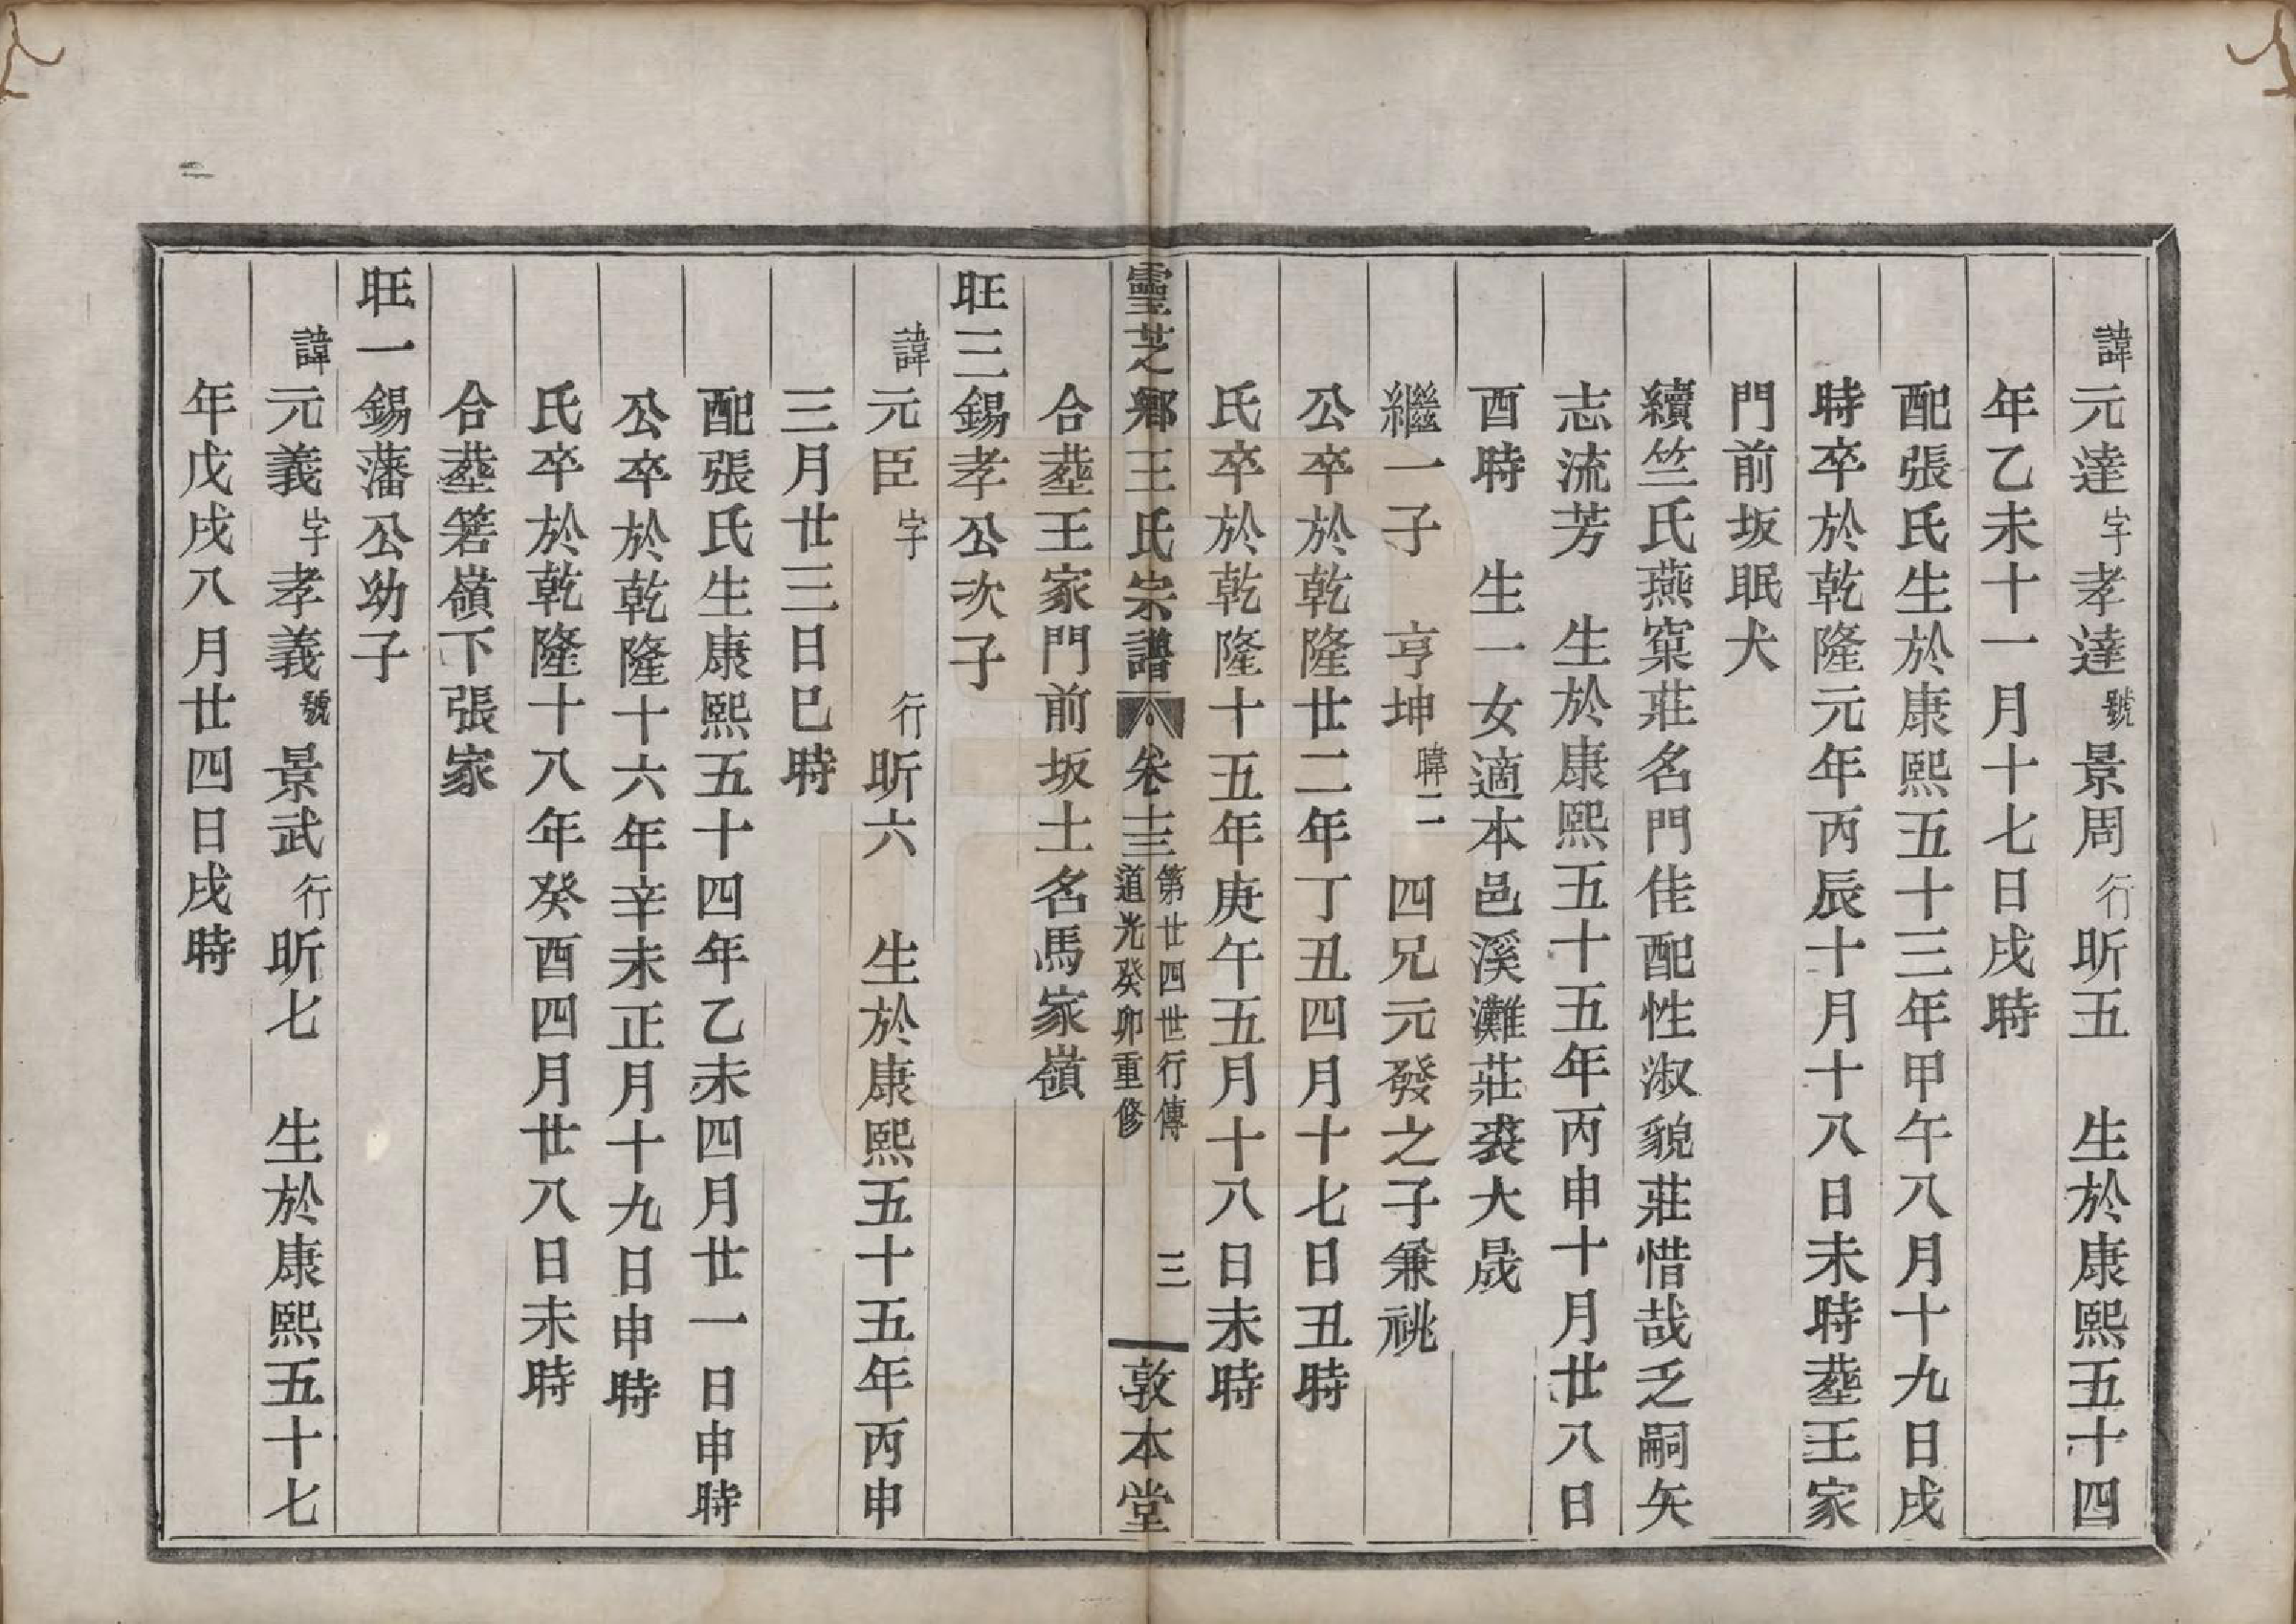 諱元達字孝達號景周行昕五　生於康熙五十四
年乙未十一月十七日戌時
配張氏生於康熙五十三年甲午八月十九日戌
時卒於乾隆元年丙辰十月十八日未時塟王家
門前坂眠犬
續竺氏燕窠莊名門佳配性淑貌莊惜哉乏嗣矢
志流芳　生於康熙五十五年丙申十月廿八日
酉時　生一女適本邑溪灘莊裘大晟
繼一子　亨坤暐二　四兄元發之子兼祧
公卒於乾隆廿二年丁丑四月十七日丑時
氏卒於乾隆十五年庚午五月十八日未時
靈芝鄉王氏宗譜　卷十三　第廿四世行傳　道光癸卯重修　三　敦本堂
合塟王家門前坂土名馬家嶺
旺三錫孝公次子
諱元臣字　　行昕六　生於康熙五十五年丙申
三月廿三日巳時
配張氏生康熙五十四年乙未四月廿一日申時
公卒於乾隆十六年辛未正月十九日申時
氏卒於乾隆十八年癸酉四月廿八日未時
合塟箬嶺下張家
旺一錫藩公幼子
諱元義字孝義號景武行昕七　生於康熙五十七
年戊戌八月廿四日戌時